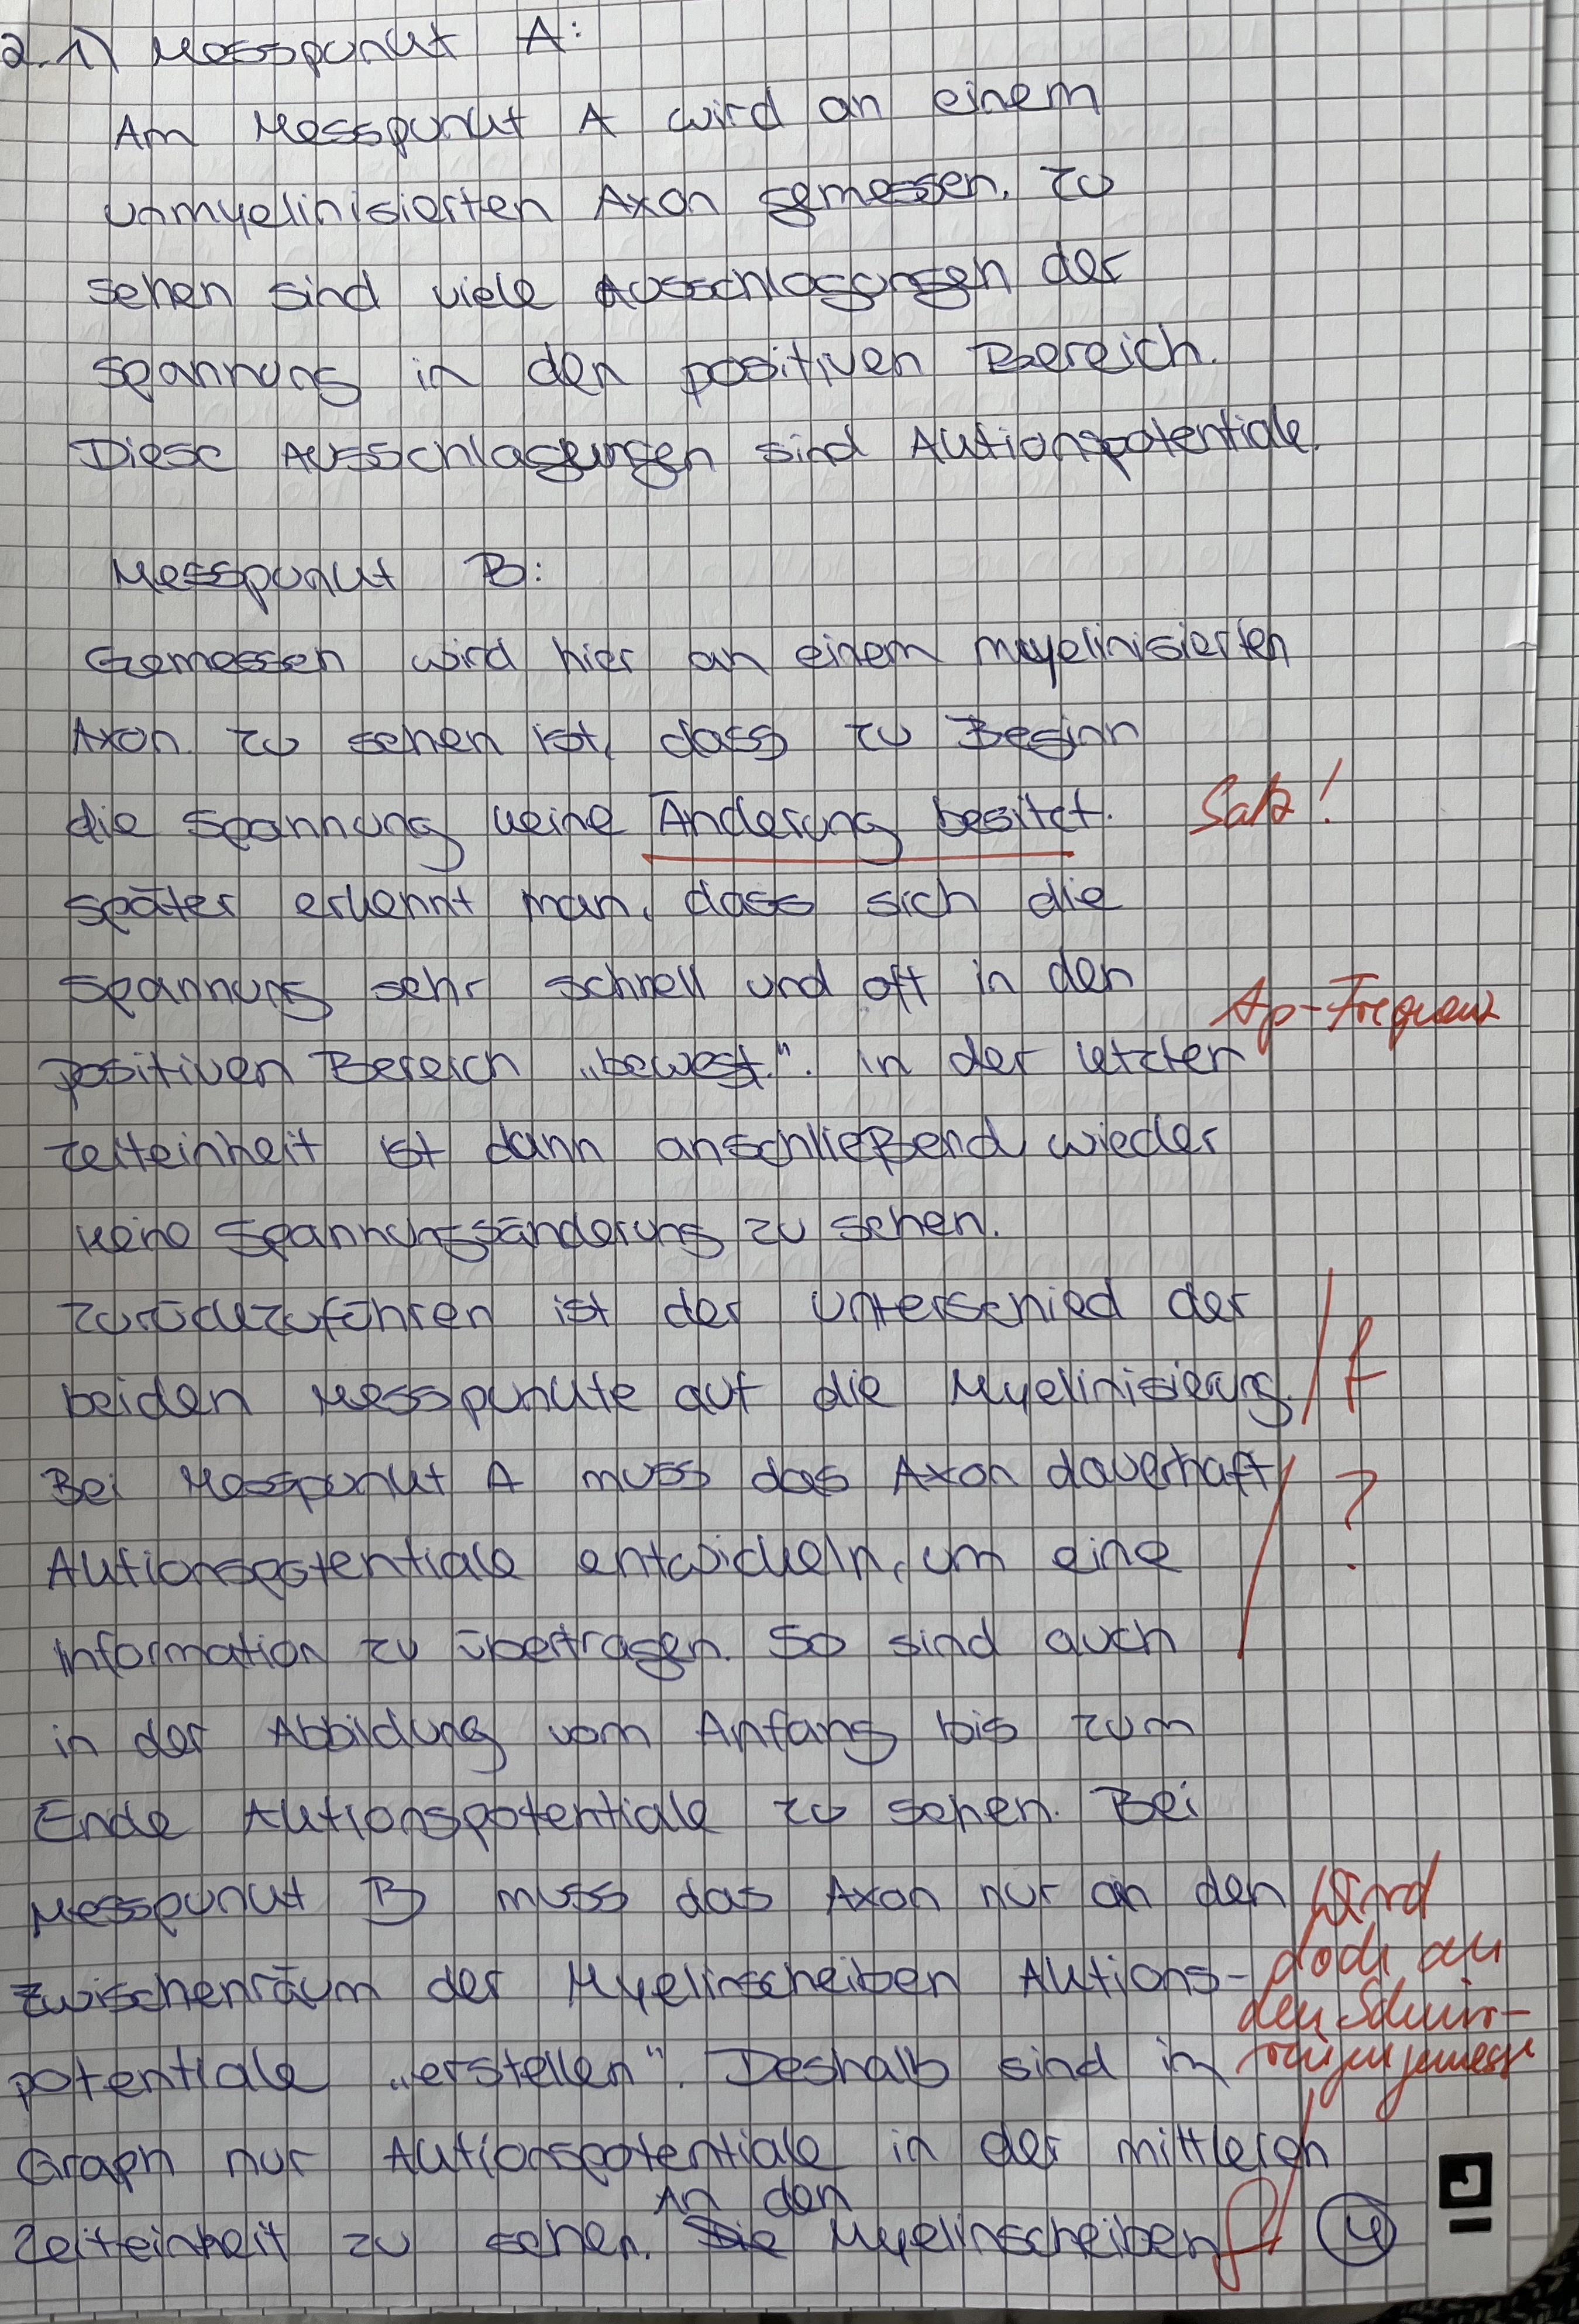 2.1) Messpunkt A:
Am Messpunkt A wird an einem
unmyelinisierten Axon gemessen. Zu
sehen sind viele Ausschlagungen der
Spannung in den positiven Bereich.
Diese Ausschlagungen sind Aktionspotentiale.
Messpunkt B:
Gemessen wird hier an einem myelinisierten
Axon. Zu sehen ist, dass zu Beginn
die Spannung keine Änderung besitzt. Satz!
Später erkennt man, dass sich die
Spannung sehr schnell und oft in den
positiven Bereich „bewegt.". In der letzten Ap-Frequenz
Zeiteinheit ist dann anschließend wieder
keine Spannungsänderung zu sehen.
Zurückzuführen ist der Unterschied der
beiden Messpunkte auf die Myelinisierung. f
Bei Messpunkt A muss das Axon dauerhaft ?
Aktionspotentiale entwickeln, um eine
Information zu übertragen. So sind auch
in der Abbildung vom Anfang bis zum
Ende Aktionspotentiale zu sehen. Bei
Messpunkt B muss das Axon nur an den Wird
Zwischenräum der Myelinscheiben Aktions- doch an
den Schnür-
potentiale „erstellen". Deshalb sind im ringen gemessen
Graph nur Aktionspotentiale in der mittleren
An den
Zeiteinheit zu sehen. Die Myelinscheiben f 4